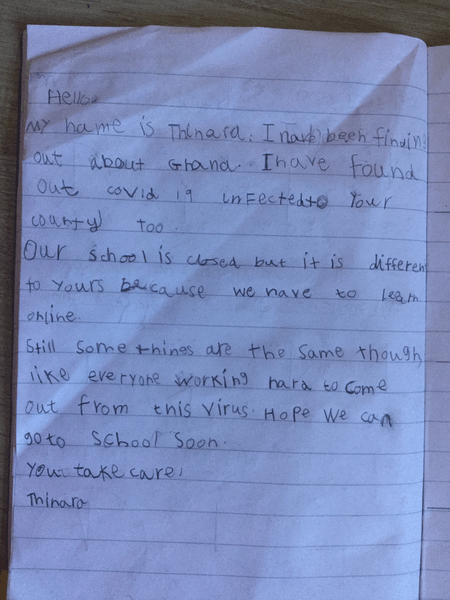 Hello.
My name is Thinara. I have been finding
out about Ghana. I have found
out covid 19 infected to Your
county too.
Our school is closed but it is different
to yours because we have to learn
online.
Still some things are the same though,
like everyone working hard to come
out from this Virus. Hope we can
go to School Soon.
You take care,
Thinara